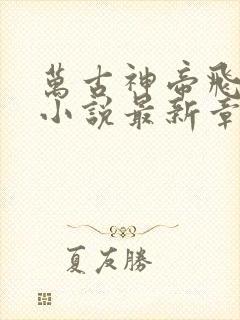 萬古神帝飛
小說最新章
夏友勝